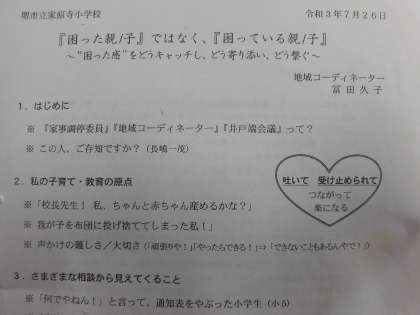 堺市立家原寺小学校
令和3年7月26日
『困った親/子』ではなく、『困っている親/子』
～“困った感”をどうキャッチし、どう寄り添い、どう繋ぐ～
地域コーディネーター
冨田久子
1．はじめに
※ 『家事調停委員』『地域コーディネーター』『井戸端会議』って？
※ この人、ご存知ですか？（長嶋一茂）
2．私の子育て・教育の原点
※「校長先生！ 私、ちゃんと赤ちゃん産めるかな？」
※ 我が子を布団に投げ捨ててしまった私！
※ 声かけの難しさ／大切さ（「頑張りや！」「やったらできる！」⇒「できないこともあるんやで！」）
吐いて 受け止められて
つながって
楽になる
3．さまざまな相談から見えてくること
※「何でやねん！」と言って、通知表をやぶった小学生（小5）